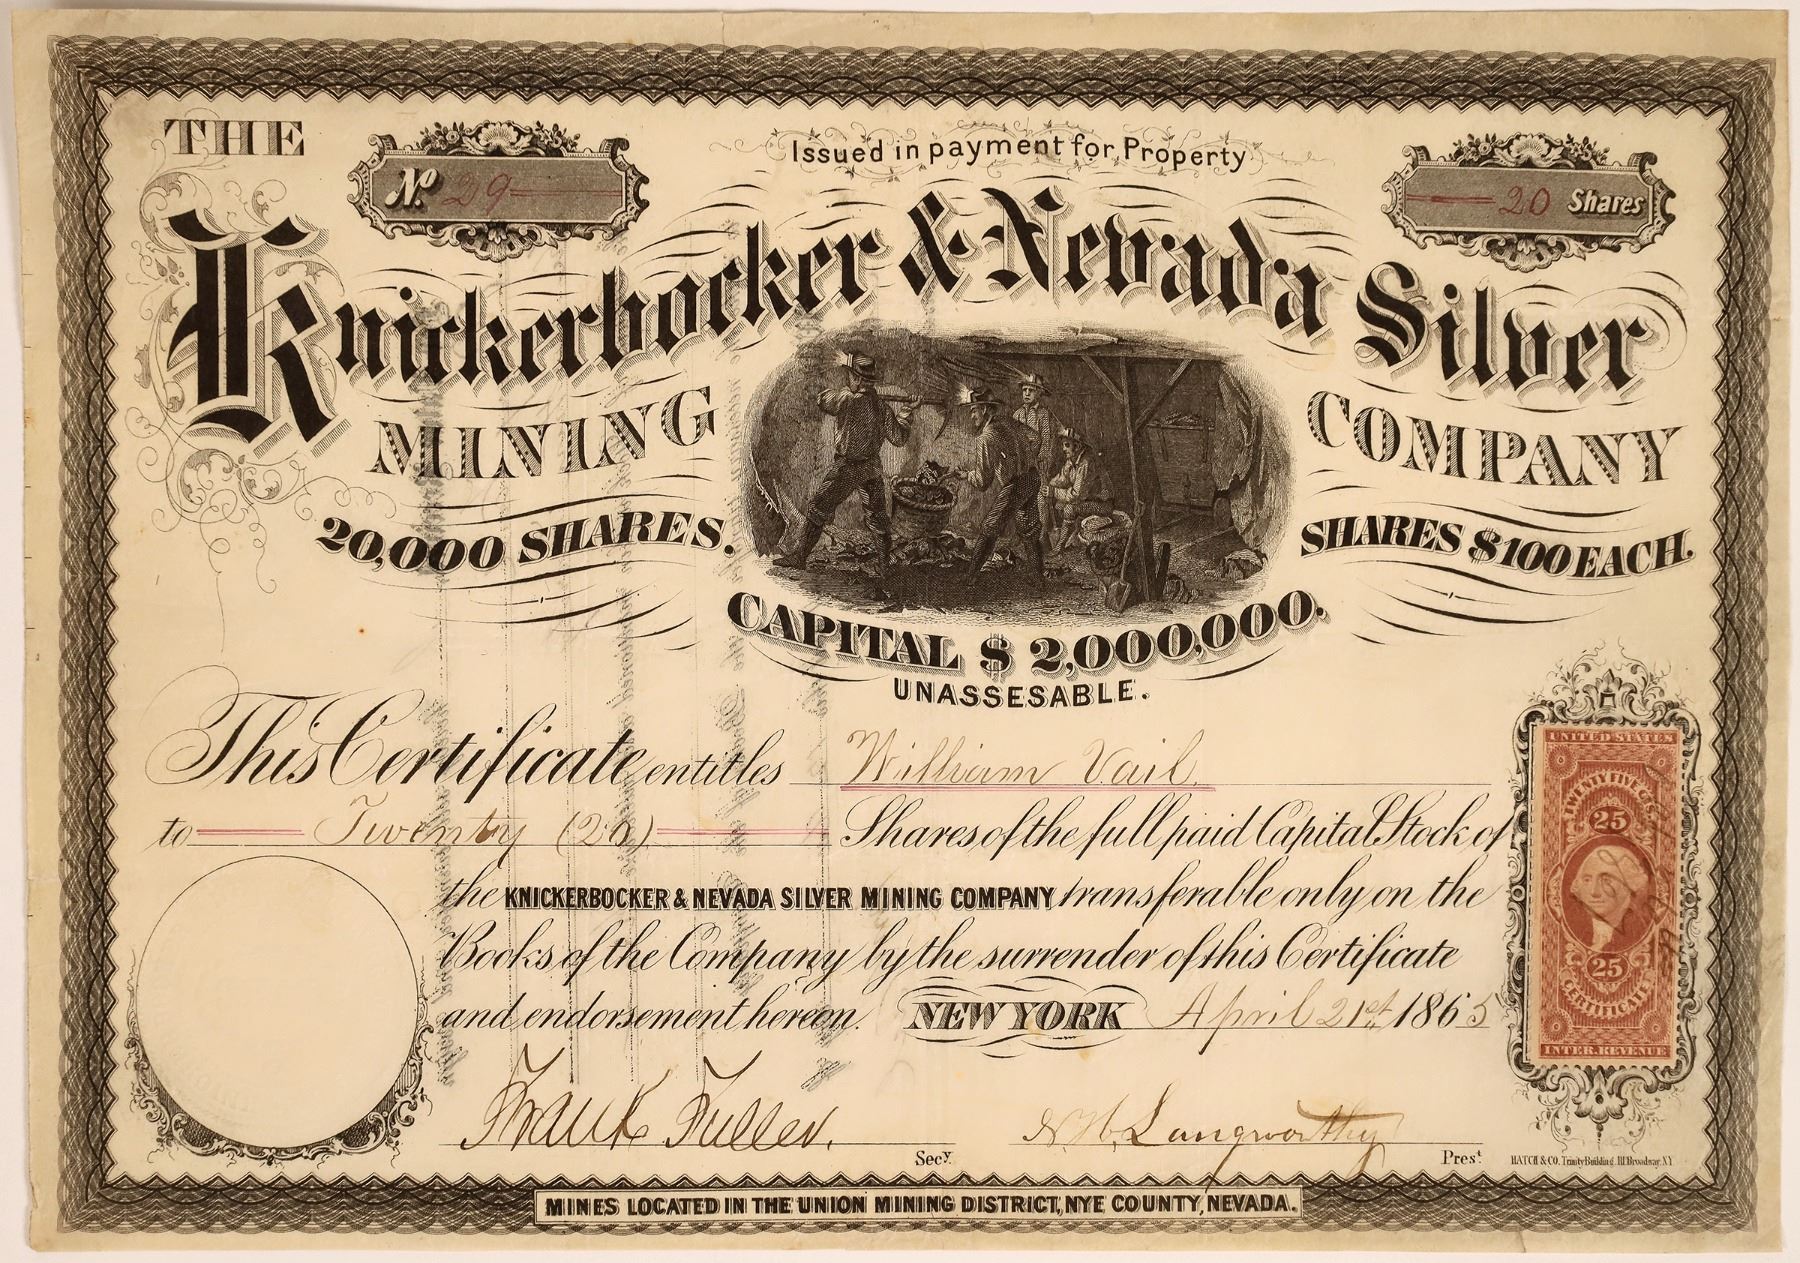 THE
No. 29
Issued in payment for Property
20 Shares
Knickerbocker & Nevada Silver
MINING COMPANY
20,000 SHARES. SHARES $100 EACH.
CAPITAL $2,000,000.
UNASSESABLE.
This Certificate entitles William Vail
to Twenty (20) Shares of the full paid Capital Stock of
the KNICKERBOCKER & NEVADA SILVER MINING COMPANY transferable only on the
Books of the Company by the surrender of this Certificate
and endorsement hereon. NEW YORK April 21st 1865
UNITED STATES
TWENTY FIVE CTS
25
25
CERTIFICATE
INTER. REVENUE
Frank Fuller. Secy.
N. H. Langworthy Prest
HATCH & CO. Trinity Building 111 Broadway, N.Y.
MINES LOCATED IN THE UNION MINING DISTRICT, NYE COUNTY, NEVADA.